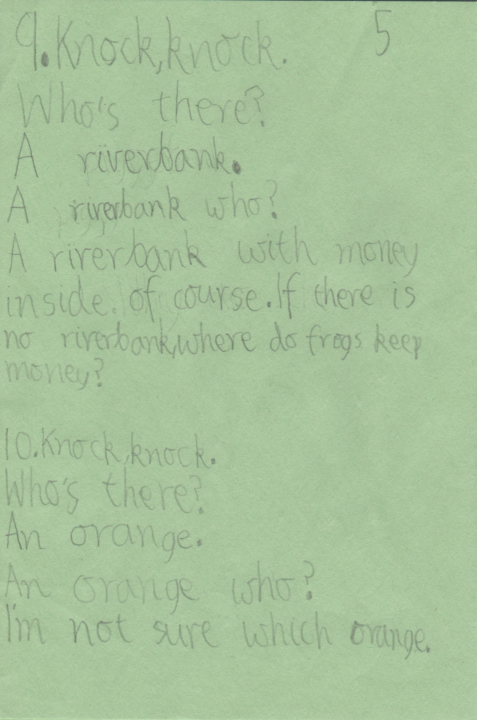 5
9.Knock,knock.
Who's there?
A riverbank.
A riverbank who?
A riverbank with money
inside. of course.If there is
no riverbank,where do frogs keep
money?
10.Knock,knock.
Who's there?
An orange.
An orange who?
I'm not sure which orange.